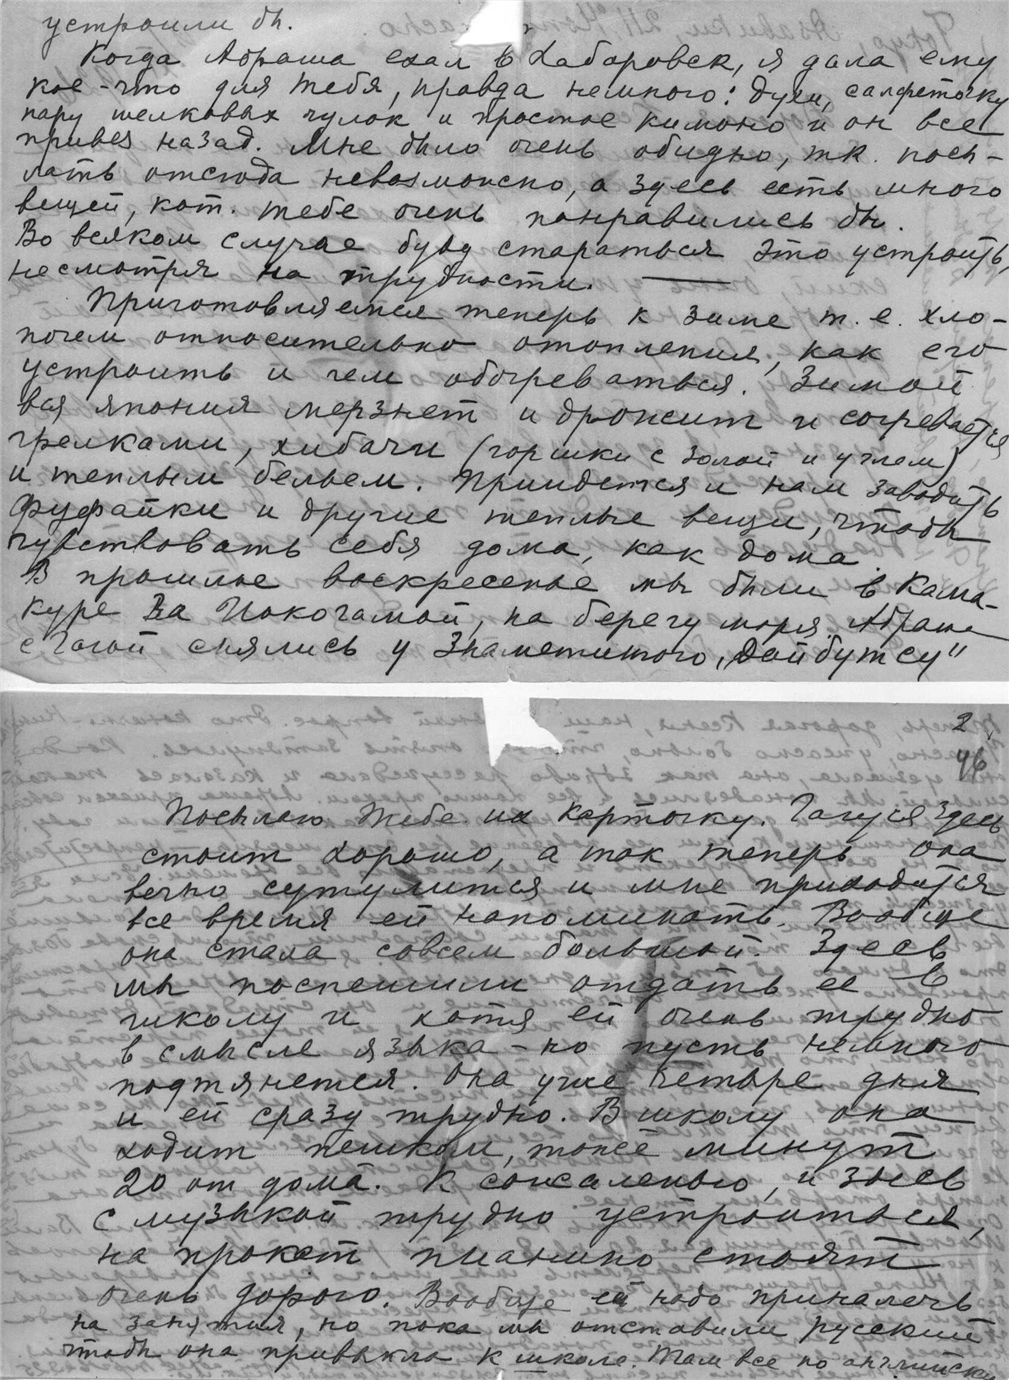 устроили бы.
Когда Абраша ехал в Хабаровск, я дала ему
кое-что для тебя, правда немного: духи, салфеточку
пару шелковых чулок и простое кимоно и он все
привез назад. Мне было очень обидно, т.к. посы-
лать отсюда невозможно, а здесь есть много
вещей, кот. тебе очень понравились бы.
Во всяком случае буду стараться это устроить,
несмотря на трудности.
Приготовляемся теперь к зиме т.е. хло-
почем относительно отопления, как его
устроить и чем обогреваться. Зимой
вся япония мерзнет и дрожит и согревается
грелками, хибачи (горшки с золой и углем)
и теплым бельем. Приидется и нам заводить
фуфайки и другие теплые вещи, чтобы
чувствовать себя дома, как дома.
В прошлое воскресенье мы были в Кама-
куре за Иокогамой, на берегу моря. Абраша
с Тасей снялись у знаменитого „Дайбутсу"
2
96
Посылаю тебе их карточку. здесь
стоит хорошо, а так теперь она
вечно сутулится и мне приходится
все время ей напоминать. Вообще
она стала совсем большой. Здесь
мы поспешили отдать ее в
школу и хотя ей очень трудно
в смысле языка - но пусть немного
подтянется. Она уже четыре дня
и ей сразу трудно. В школу она
ходит пешком, тоже минут
20 от дома. К сожалению, и здесь
с музыкой трудно устроиться,
на прокат пианино стоят
очень дорого. Вообще ей надо приналечь
на занятия, но пока мы отставили русский
чтобы она привыкла к школе. Там все по английски